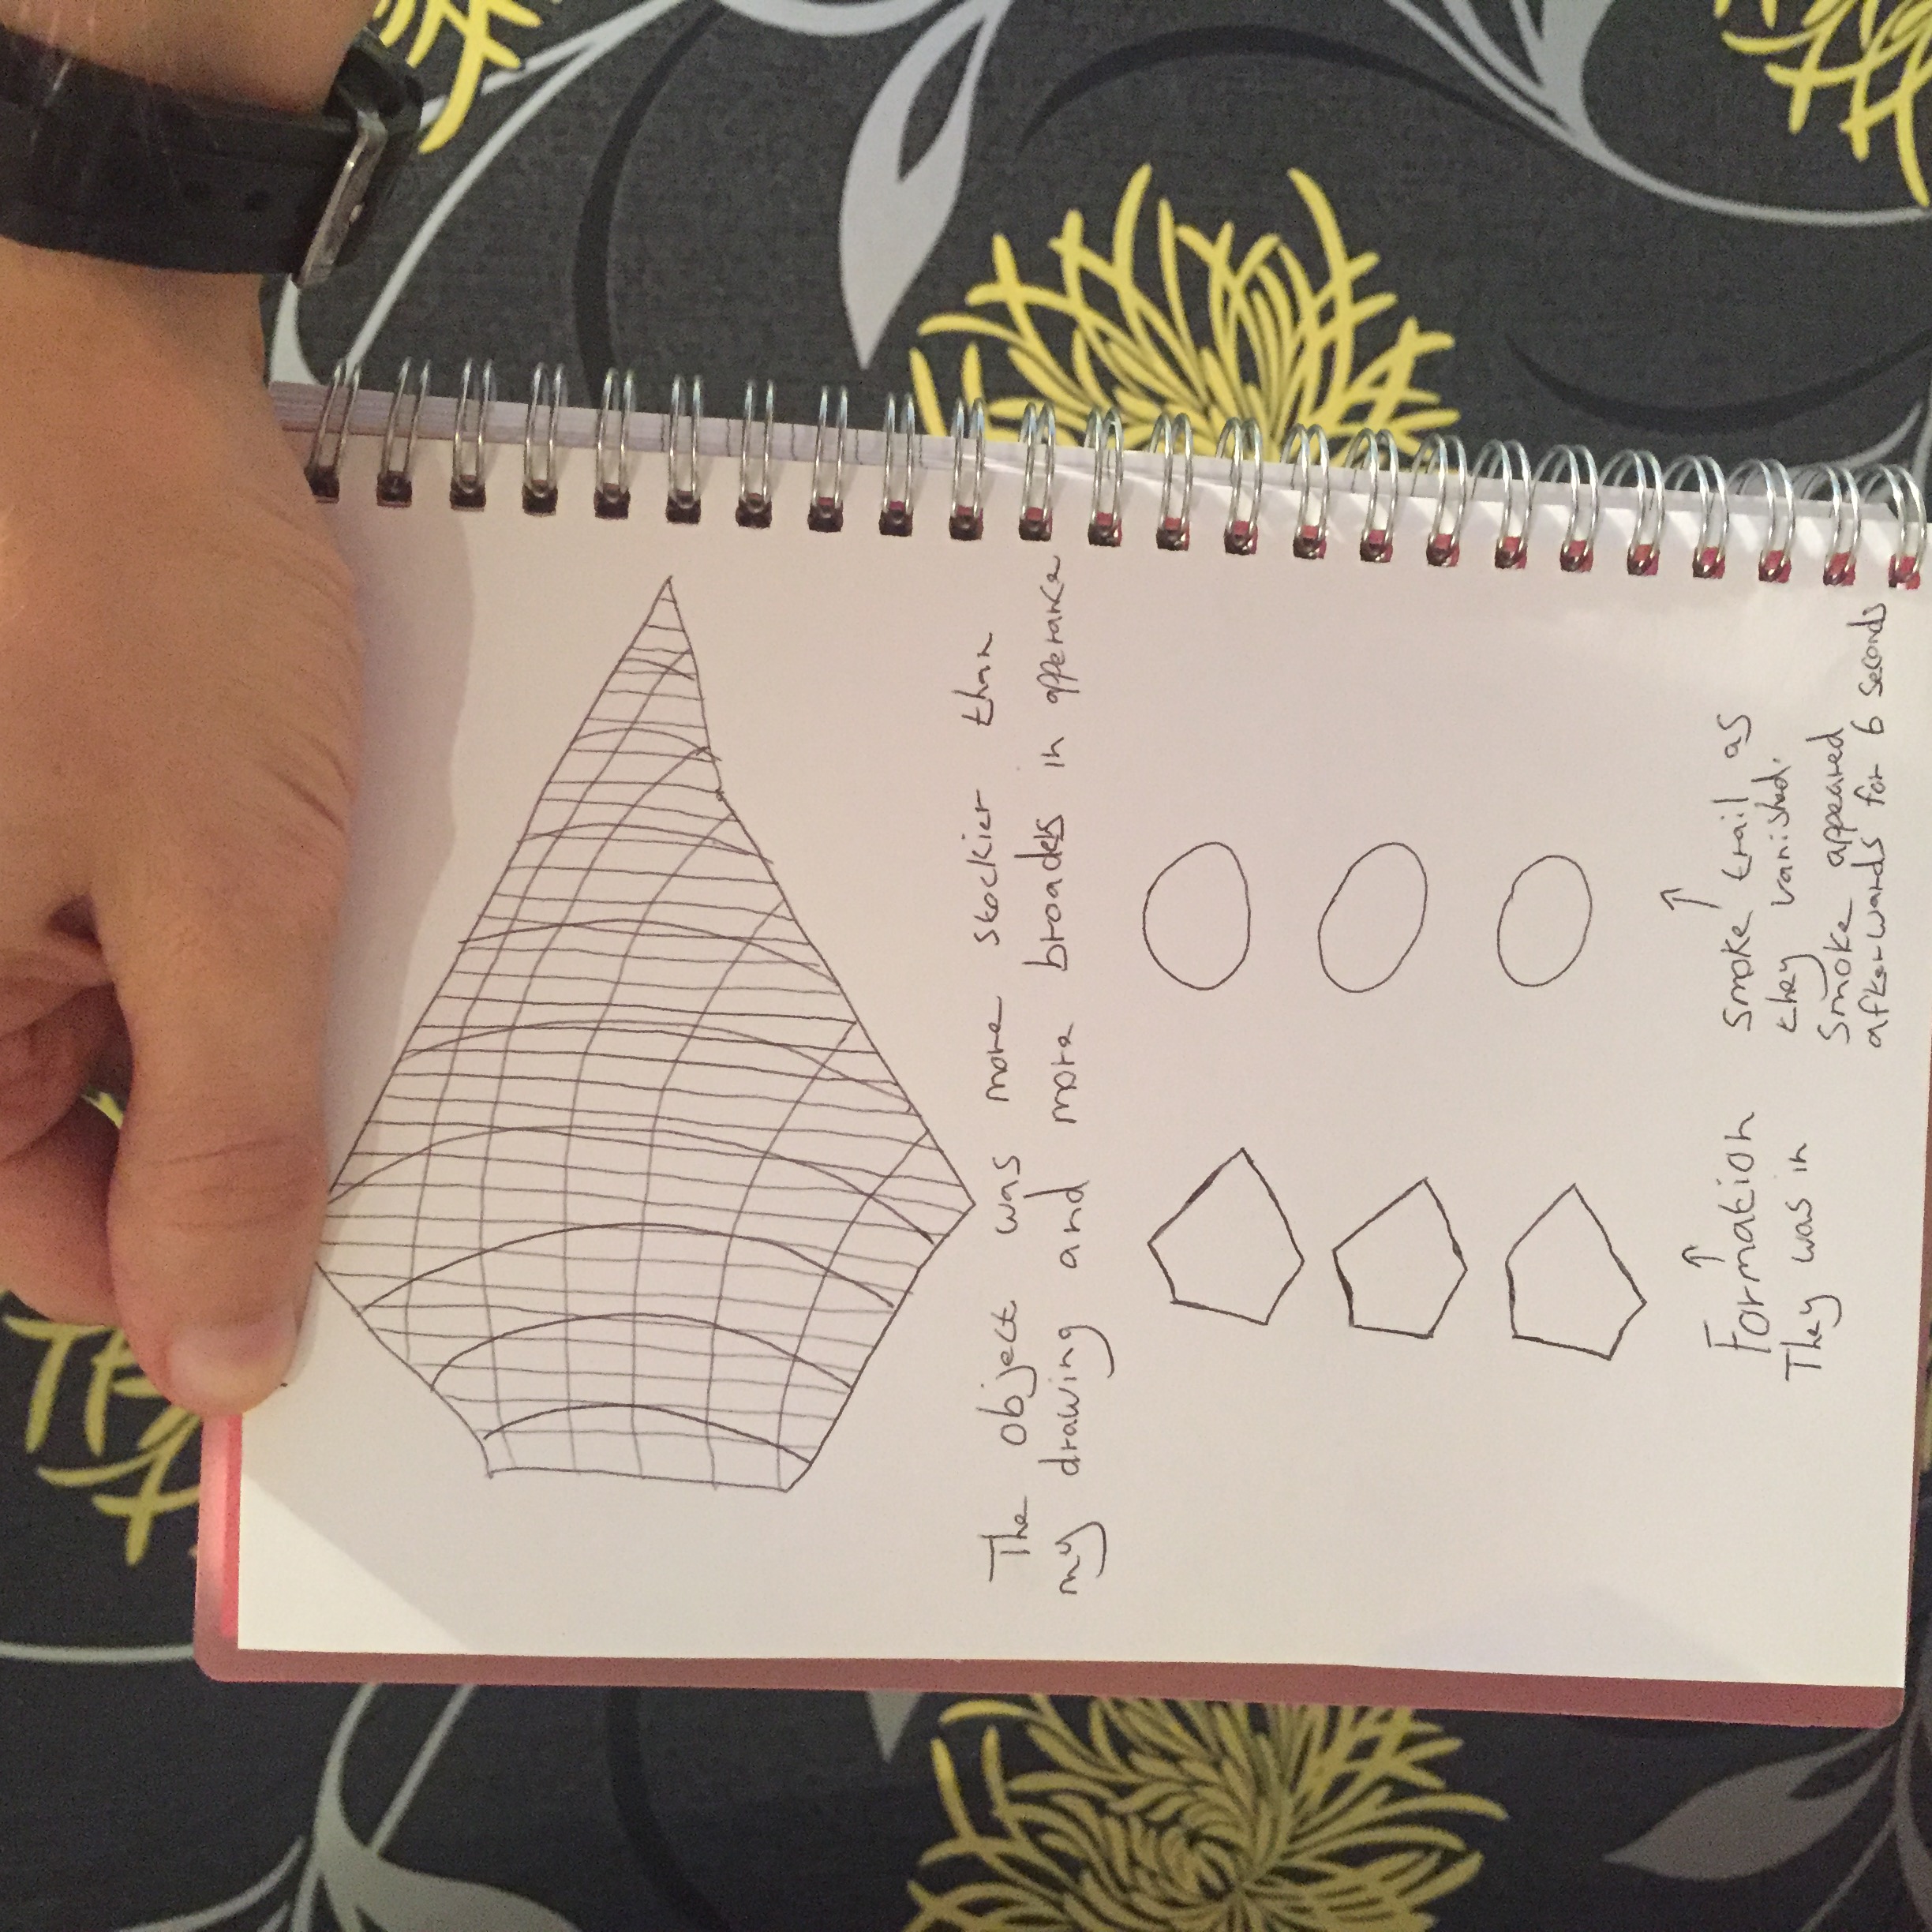 The object was more stockier than
my drawing and more broader in apperance
Formation
They was in
smoke trail as
they vanished.
Smoke appeared
afterwards for 6 seconds